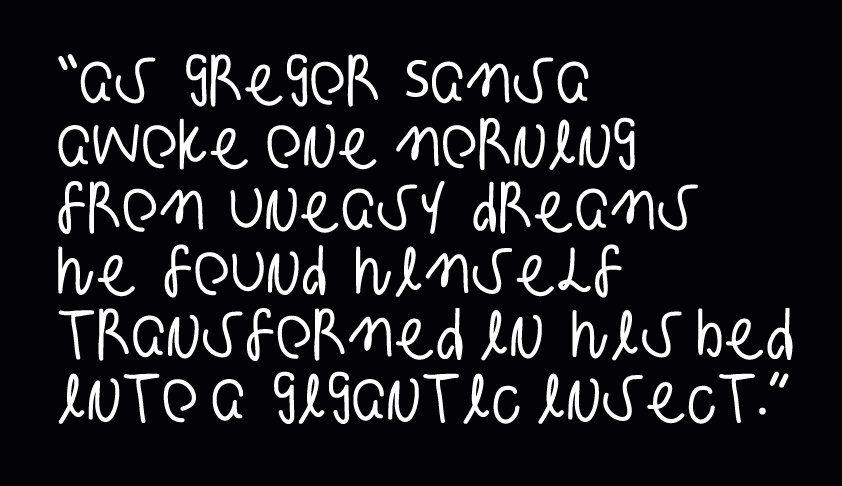 “as gregor samsa
awoke one morning
from uneasy dreams
he found himself
transformed in his bed
into a gigantic insect.”